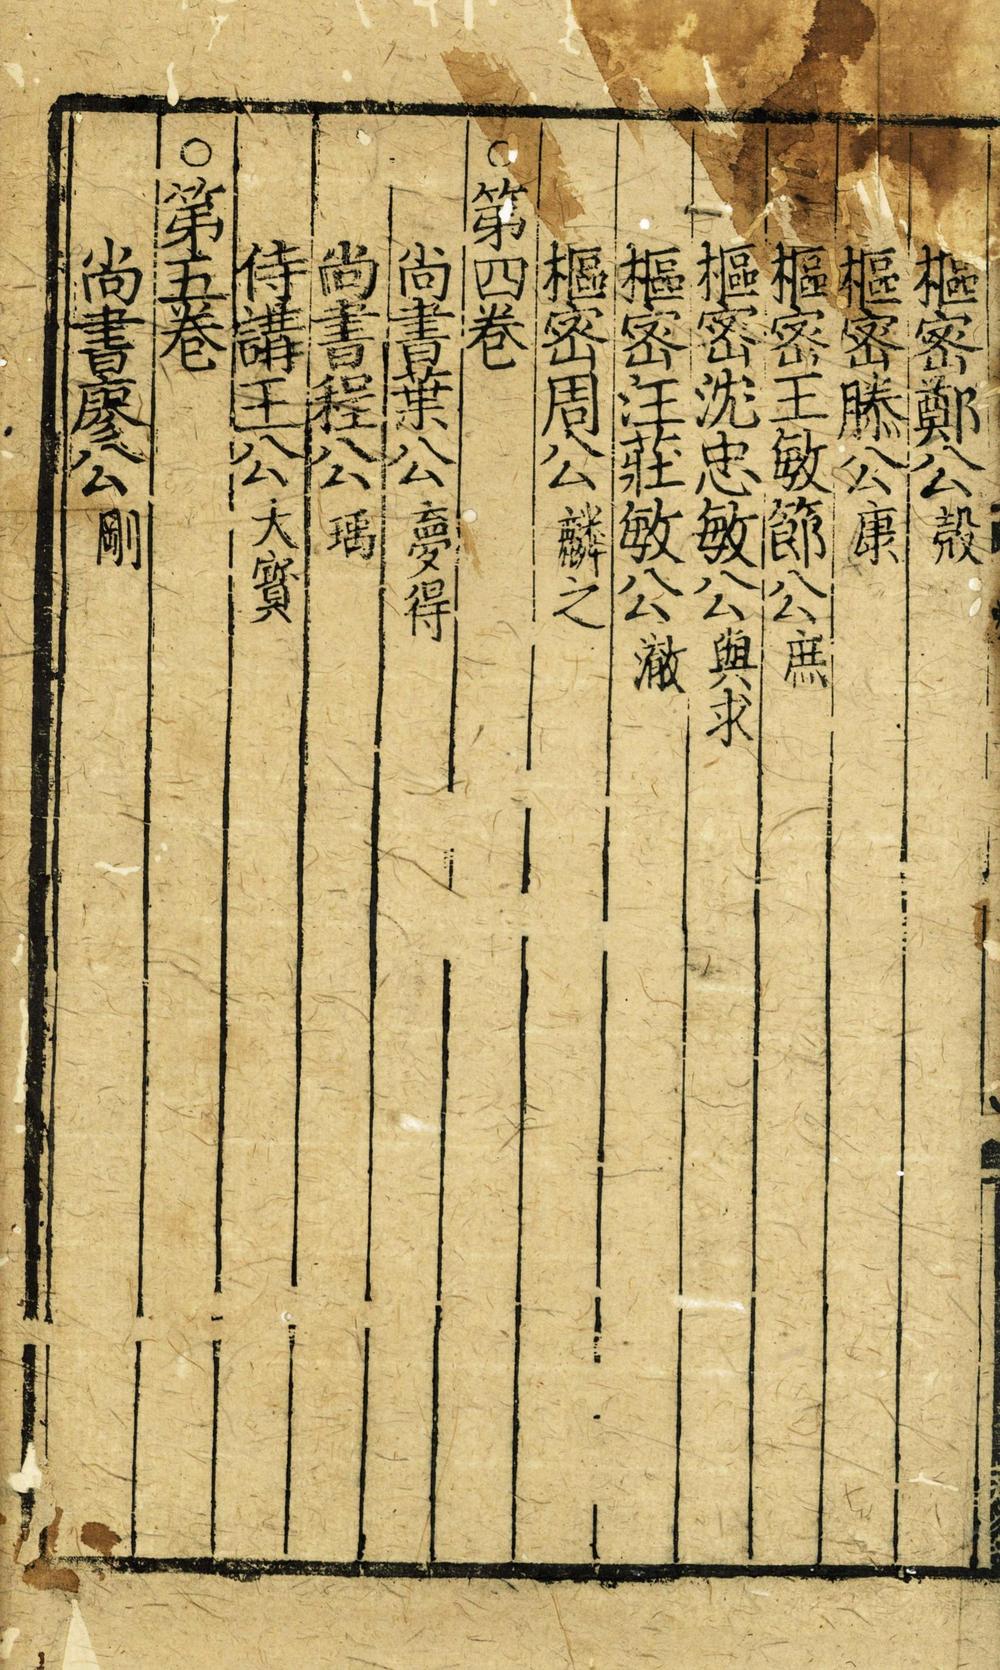 樞密鄭公 㲉
樞密滕公 康
樞密王敏節公 庶
樞密沈忠敏公 與求
樞密汪莊敏公 澈
樞密周公 麟之
○第四卷
尚書葉公 夢得
尚書程公 瑀
侍講王公 大寶
○第五卷
尚書廖公 剛